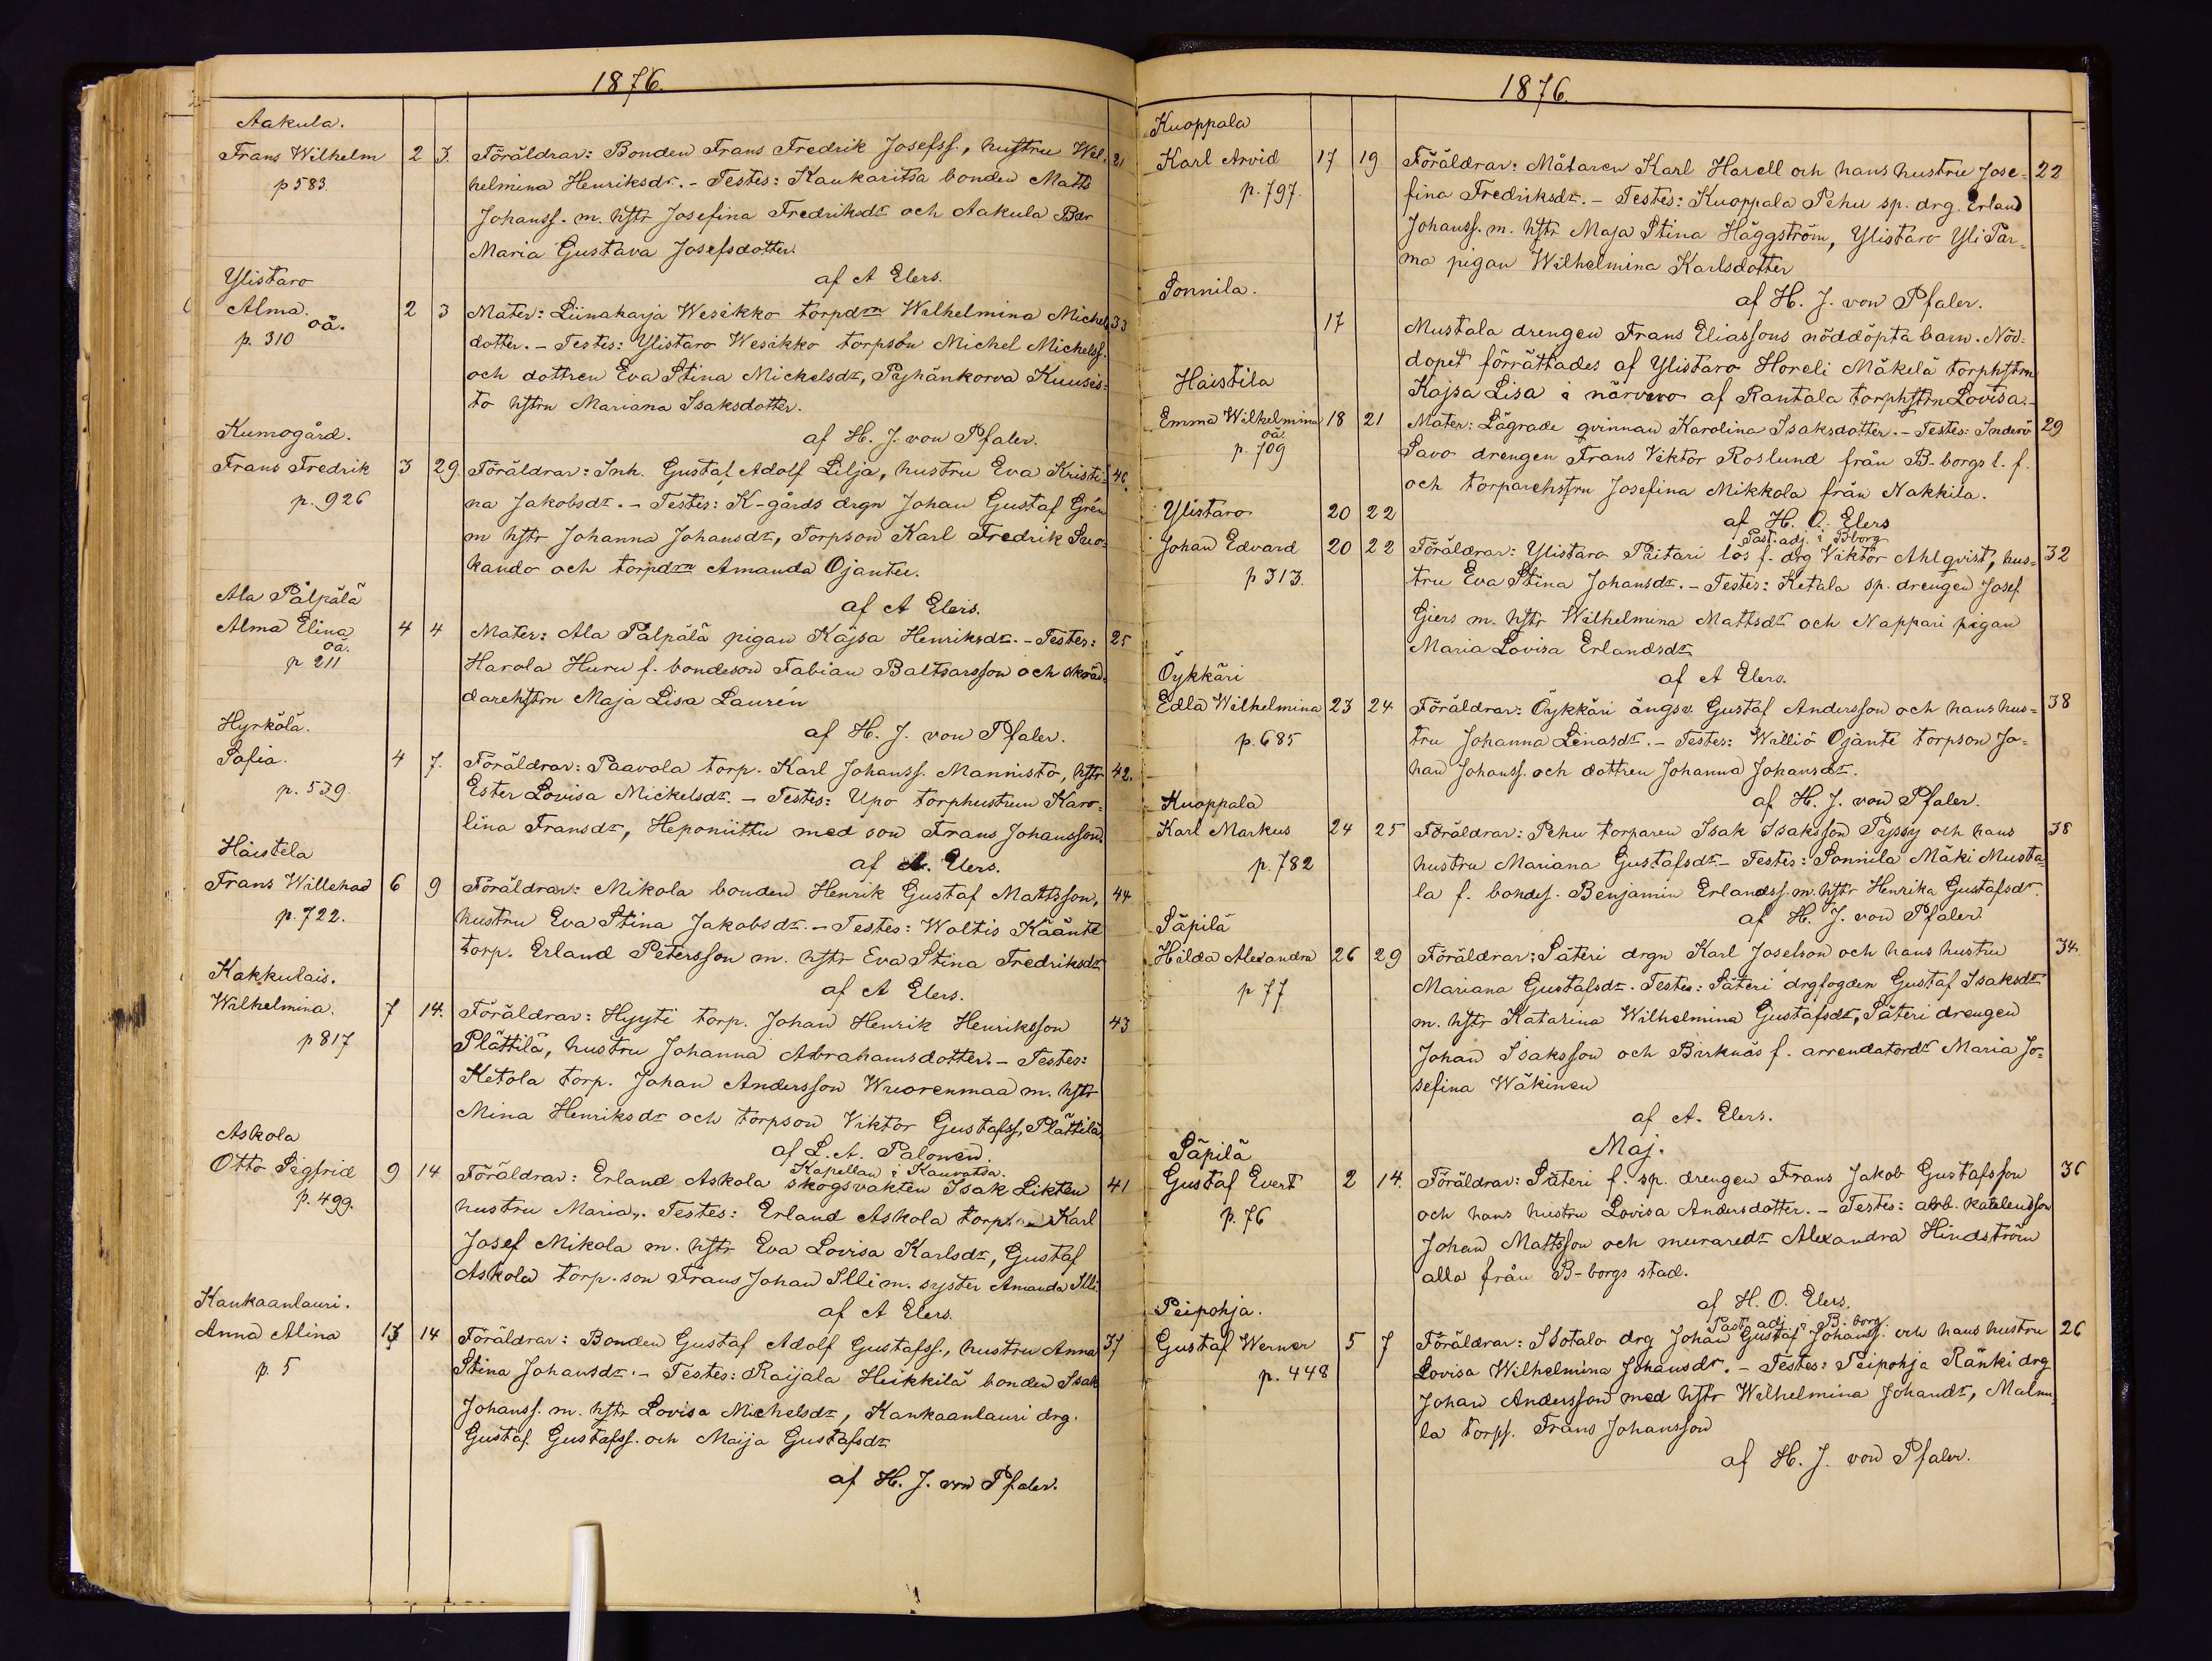 1876.
Aakula.
Frans Wilhelm 2 3. Föräldrar: Bonden Frans Fredrik Josefss., hustru Wil- 21
p 583. helmina Henriksdr. - Testes: Kaukaritsa bonden Matts
Johanss. m. hstr Josefina Fredriksdr och Aakula Bdr
Maria Gustava Josefsdotter.
af A Elers.
Ylistaro
Alma. oä. 2 3 Mater: Liinaharja Wesikko torpdrn Wilhelmina Michels 33
p. 310 dotter. - Testes: Ylistaro Wesikko torpson Michel Michelss.
och dottren Eva Stina Mickelsdr, Pyhänkorva Kuusis-
to hstru Mariana Isaksdotter.
af H. J. von Pfaler.
Kumogård.
Frans Fredrik 3 29. Föräldrar: Inh. Gustaf Adolf Lilja, hustru Eva Kristi- 46.
p. 926 na Jakobsdr. - Testes: K-gårds drgn Johan Gustaf Grén
m hstr Johanna Johansdr, Torpson Karl Fredrik Suo-
kando och torpdrn Amanda Ojanteu.
af A Elers.
Ala Pälpälä
Alma Elina oä. 4 4 Mater: Ala Pälpälä pigan Kajsa Henriksdr. - Testes: 25
p 211 Harola Huru f. bondeson Fabian Baltsarsson och skräd-
darehstrn Maja Lisa Laurén
af H. J. von Pfaler.
Hyrkölä.
Sofia. 4 7. Föräldrar: Paavola torp. Karl Johanss. Mannisto, hstr 42.
p. 539. Ester Lovisa Mickelsdr. - Testes: Upo torphustrun Karo-
lina Fransdr, Heponiittu med son Frans Johansson.
af A. Elers.
Haistela
Frans Willehad 6 9 Föräldrar: Mikola bonden Henrik Gustaf Mattsson, 44
p. 722. hustru Eva Stina Jakobsdr. - Testes: Woltis Käänte
torp. Erland Petersson m. hstr Eva Stina Fredriksdr
af A Elers.
Kakkulais.
Wilhelmina. 7 14. Föräldrar: Hyyti torp. Johan Henrik Henriksson 43
p 817 Plättilä, hustru Johanna Abrahamsdotter. - Testes:
Ketola torp. Johan Andersson Wuorenmaa m. hstr
Mina Henriksdr och torpson Viktor Gustafss. Plättilä
af L. A. Palonen.
Kapellan i Kauvatsa.
Askola
Otto Sigfrid 9 14 Föräldrar: Erland Askola skogsvakten Isak Likten 41
p. 499. hustru Maria. Testes: Erland Askola torpson Karl
Josef Mikola m. hstr Eva Lovisa Karlsdr, Gustaf
Askola torp. son Frans Johan Illi m. syster Amanda Illi
af A Elers.
Kankaanlauri.
Anna Alina 13 14 Föräldrar: Bonden Gustaf Adolf Gustafss., hustru Anna 37
p. 5 Stina Johansdr. - Testes: Raijala Heikkilä bonden Isak
Johanss. m. hstr Lovisa Michelsdr, Kankaanlauri drg.
Gustaf Gustafss. och Maija Gustafsdr
af H. J. von Pfaler.
1876.
Kuoppala
Karl Arvid 17 19 Föräldrar: Målaren Karl Harell och hans hustru Jose- 22
p. 797. fina Fredriksdr. - Testes: Kuoppala Pehu sp. drg. Erland
Johanss. m. hstr Maja Stina Häggström, Ylistaro Yli Par-
ma pigan Wilhelmina Karlsdotter
af H. J. von Pfaler.
Sonnila.
17 Mustala drengen Frans Eliassons nöddöpta barn. Nöd-
dopet förrättades af Ylistaro Horeli Mäkelä torphstrn
Kajsa Lisa i närvaro af Rantala torphstrn Lovisa.
Haistila
Emma Wilhelmina oä. 18 21 Mater: Lägrade qvinnan Karolina Isaksdotter. - Testes: Inderö 29
p. 709 Savo drengen Frans Viktor Roslund från B-borgs l. f.
och torparehstru Josefina Mikkola från Nakkila.
af H. O. Elers
Past. adj. i B-borg
Ylistaro 20 22
Johan Edvard 20 22 Föräldrar: Ylistaro Pritari lös f. drg Viktor Ahlqvist, hus- 32
p 313. tru Eva Stina Johansdr. - Testes: Ketala sp. drengen Josef
Giers m. hstr Wilhelmina Mattsdr och Nappari pigan
Maria Lovisa Erlandsdr
af A Elers.
Öykkäri
Edla Wilhelmina 23 24 Föräldrar: Öykkäri ängsv. Gustaf Andersson och hans hus- 38
p. 685 tru Johanna Linasdr. - Testes: Williö Ojante torpson Jo-
han Johanss. och dottren Johanna Johansdr.
af H. J. von Pfaler.
Kuoppala
Karl Markus 24 25 Föräldrar: Pehu torparen Isak Isaksson Pyssy och hans 38
p. 782 hustru Mariana Gustafsdr - Testes: Sonnila Mäki Musta
la f. bondes. Benjamin Erlandss. m. hstr Henrika Gustafsdr.
af H. J. von Pfaler
Säpilä
Hilda Alexandra 26 29 Föräldrar: Säteri drgn Karl Josefson och hans hustru 34.
p 77 Mariana Gustafsdr. Testes: Säteri drgfogden Gustaf Isaksdr
m. hstr Katarina Wilhelmina Gustafsdr, Säteri drengen
Johan Isaksson och Birknäs f. arrendatordr Maria Jo-
sefina Wäkinen
af A. Elers.
Maj.
Säpilä
Gustaf Evert 2 14. Föräldrar: Säteri f. sp. drengen Frans Jakob Gustafsson 36
p. 76 och hans hustru Lovisa Andersdotter. - Testes: arb.
Johan Mattsson och muraredr Alexandra Hindström
alla från B-borgs stad.
af H. O. Elers.
Past. adj. i B-borg.
Peipohja.
Gustaf Werner 5 7 Föräldrar: Isotalo drg Johan Gustaf Johanss. och hans hustru 26
p. 448 Lovisa Wilhelmina Johansdr. - Testes: Peipohja Ränki drg
Johan Andersson med hstr Wilhelmina Johandr, Malmi-
la torps. Frans Johansson
af H. J. von Pfaler.